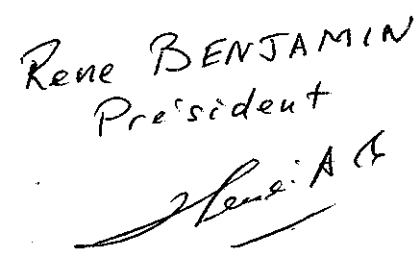 Rene BENJAMIN
Président